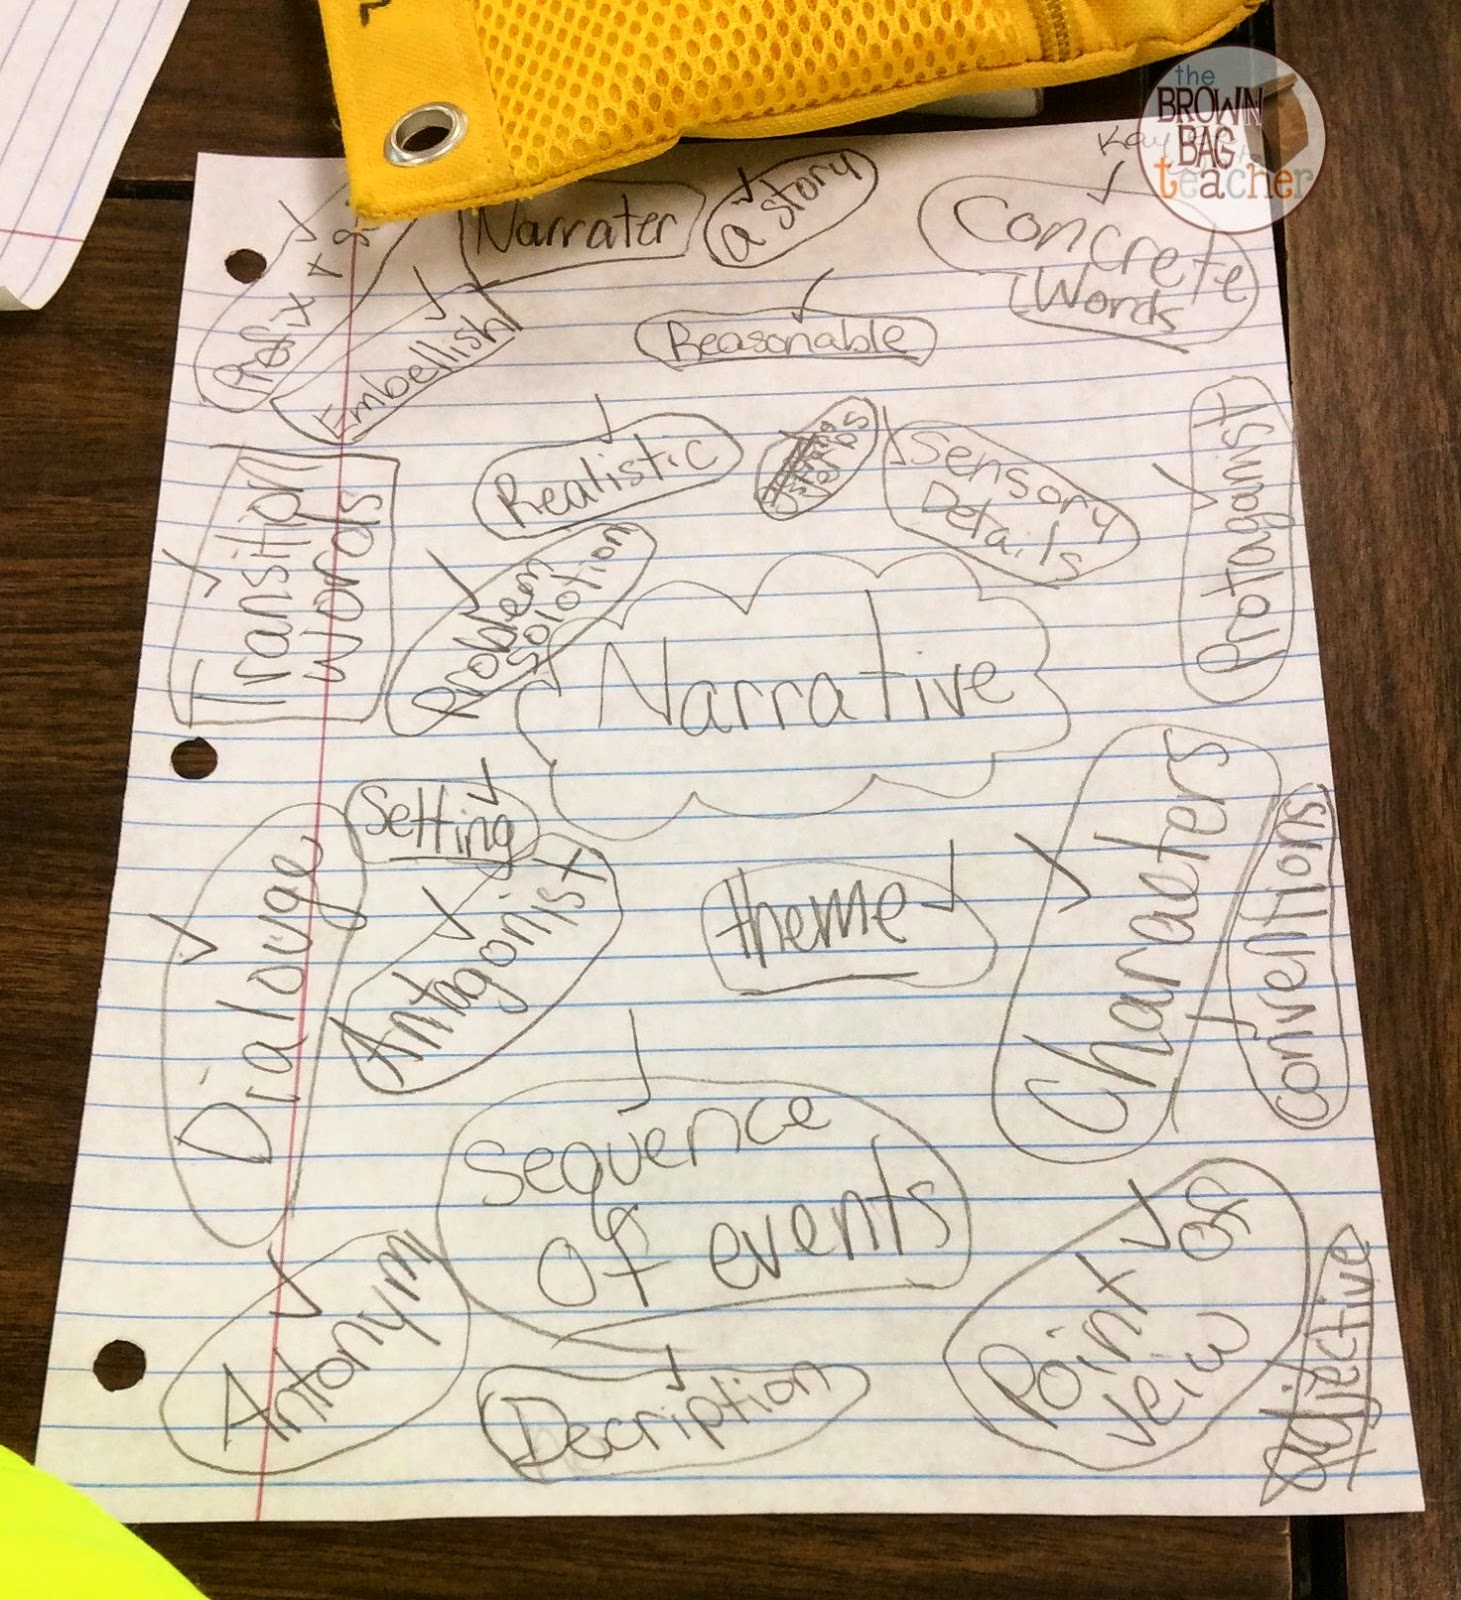 the
BROWN
BAG
teacher
Kay
Narrater
a story
Concrete
Words
Prefix
Embellish
Reasonable
Realistic
Sensory
Details
Protaganist
Transition
Words
Problem
solotion
Narrative
Setting
Dialouge
Antagonist
theme
Charaters
Conventions
Sequence
of events
Antonym
Decription
Point of
veiw
adjective